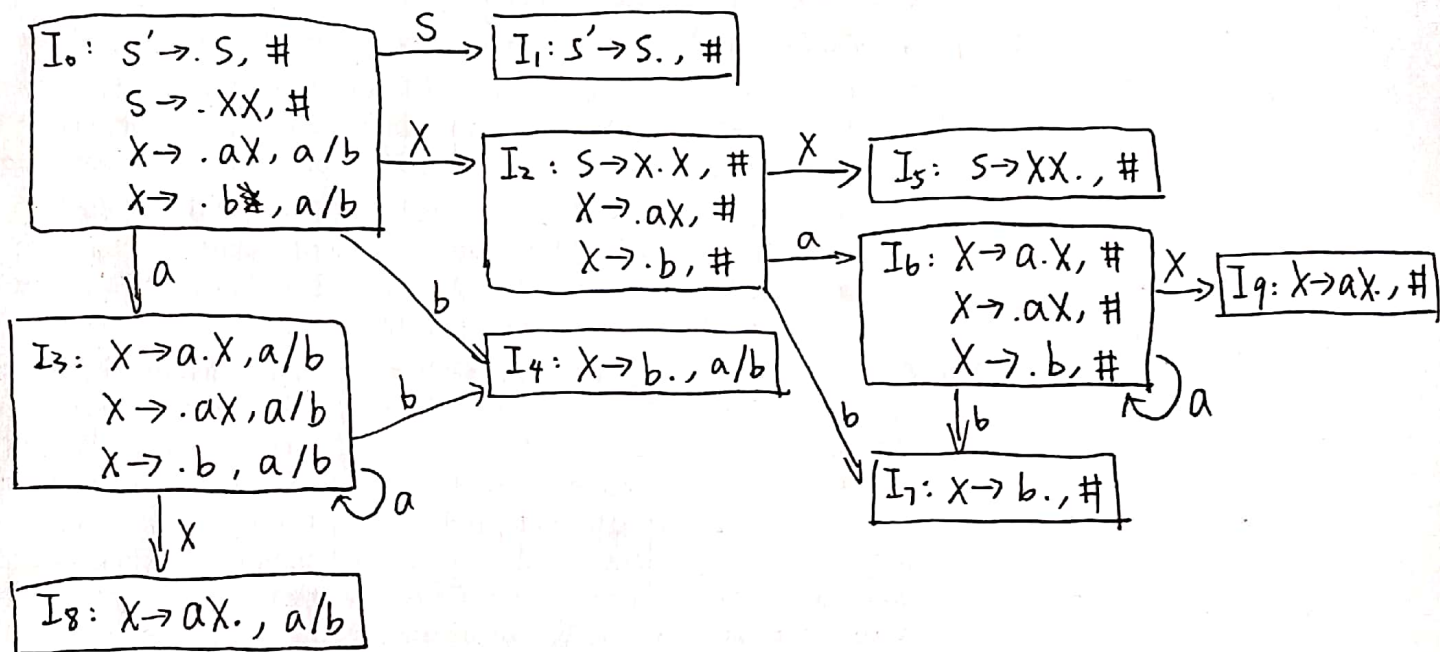 I₀: S'→.S, #
S→.XX, #
X→.aX, a/b
X→.b, a/b
S
I₁: S'→S., #
X
I₂: S→X.X, #
X→.aX, #
X→.b, #
X
I₅: S→XX., #
a
I₆: X→a.X, #
X→.aX, #
X→.b, #
X
I₉: X→aX., #
a
b
a
b
I₃: X→a.X, a/b
X→.aX, a/b
X→.b, a/b
b
I₄: X→b., a/b
b
I₇: X→b., #
a
X
I₈: X→aX., a/b